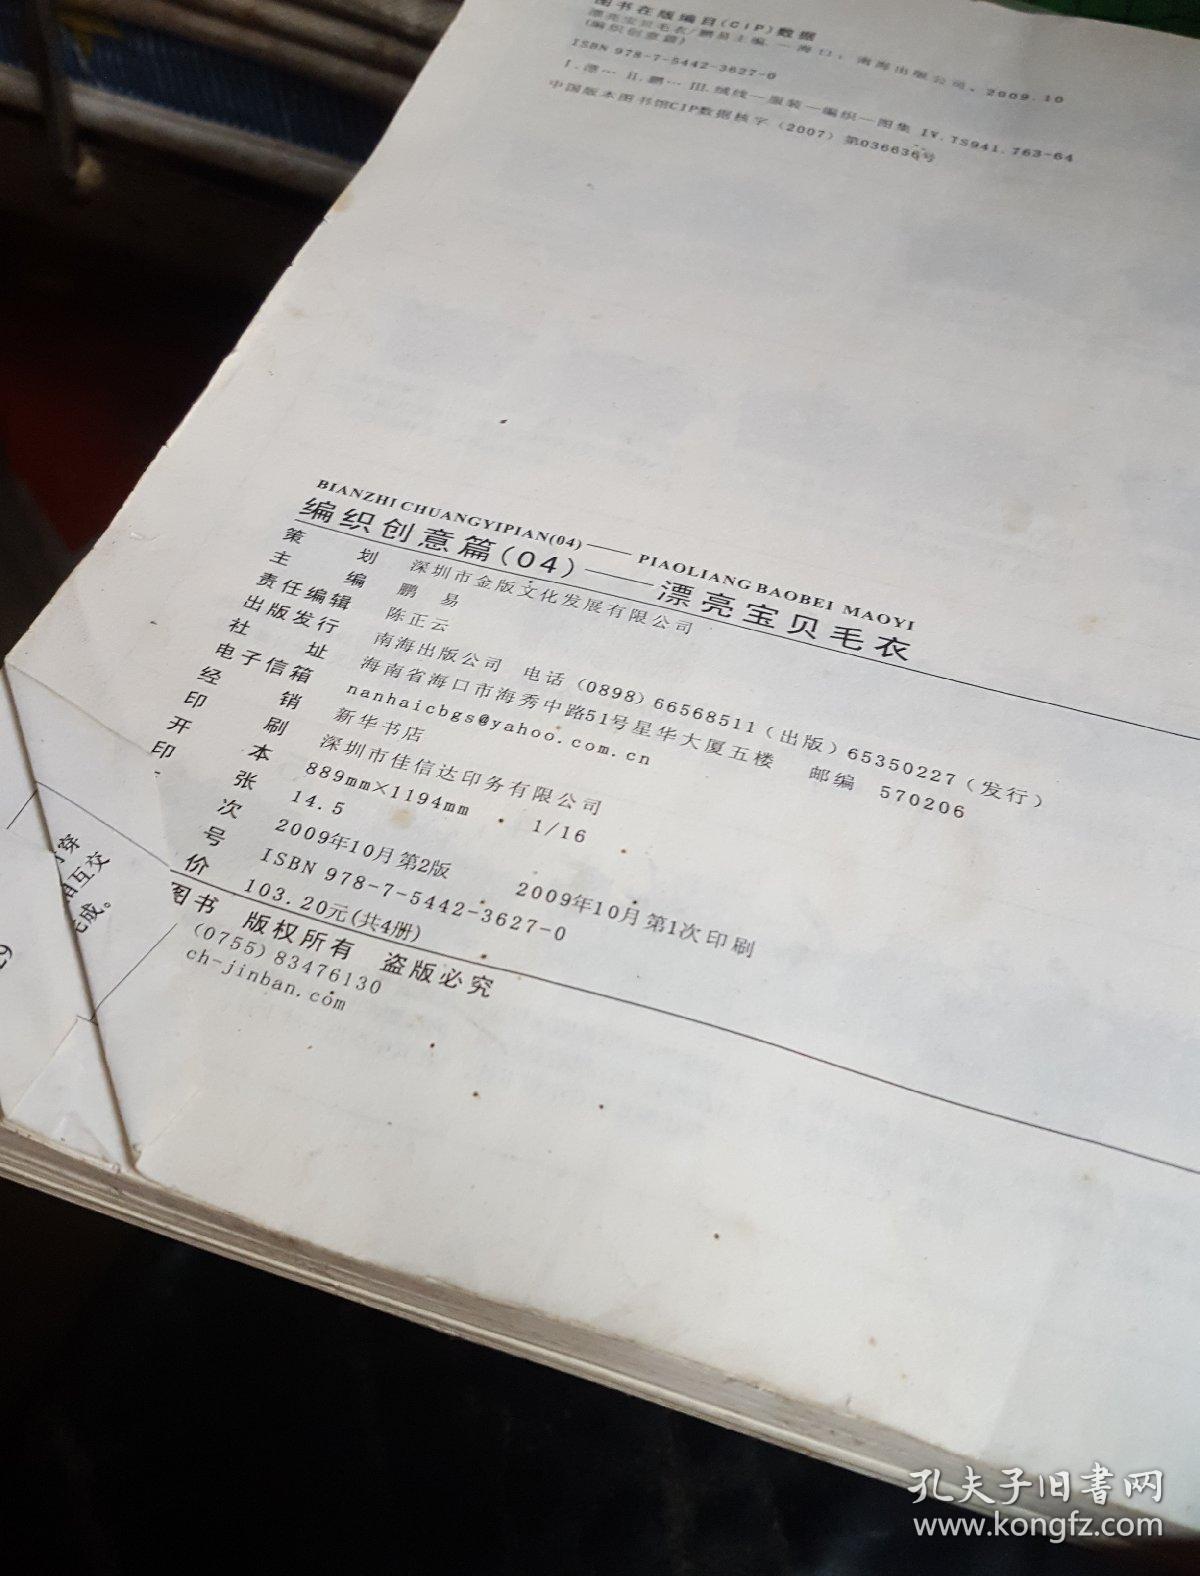 图书在版编目(CIP)数据
漂亮宝贝毛衣/鹏易主编.—海口：南海出版公司，2009.10
(编织创意篇)
ISBN 978-7-5442-3627-0
Ⅰ.漂… Ⅱ.鹏… Ⅲ.绒线—服装—编织—图集 Ⅳ.TS941.763-64
中国版本图书馆CIP数据核字(2007)第036636号
BIANZHI CHUANGYIPIAN(04)——PIAOLIANG BAOBEI MAOYI
编织创意篇(04)——漂亮宝贝毛衣
策 划 深圳市金版文化发展有限公司
主 编 鹏 易
责任编辑 陈正云
出版发行 南海出版公司 电话(0898)66568511(出版)65350227(发行)
社 址 海南省海口市海秀中路51号星华大厦五楼 邮编 570206
电子信箱 nanhaicbgs@yahoo.com.cn
经 销 新华书店
印 刷 深圳市佳信达印务有限公司
开 本 889mm×1194mm 1/16
印 张 14.5
次 2009年10月第2版 2009年10月第1次印刷
号 ISBN 978-7-5442-3627-0
价 103.20元(共4册)
图书 版权所有 盗版必究
(0755)83476130
ch-jinban.com
穿
相互交
完成。
孔夫子旧书网
www.kongfz.com